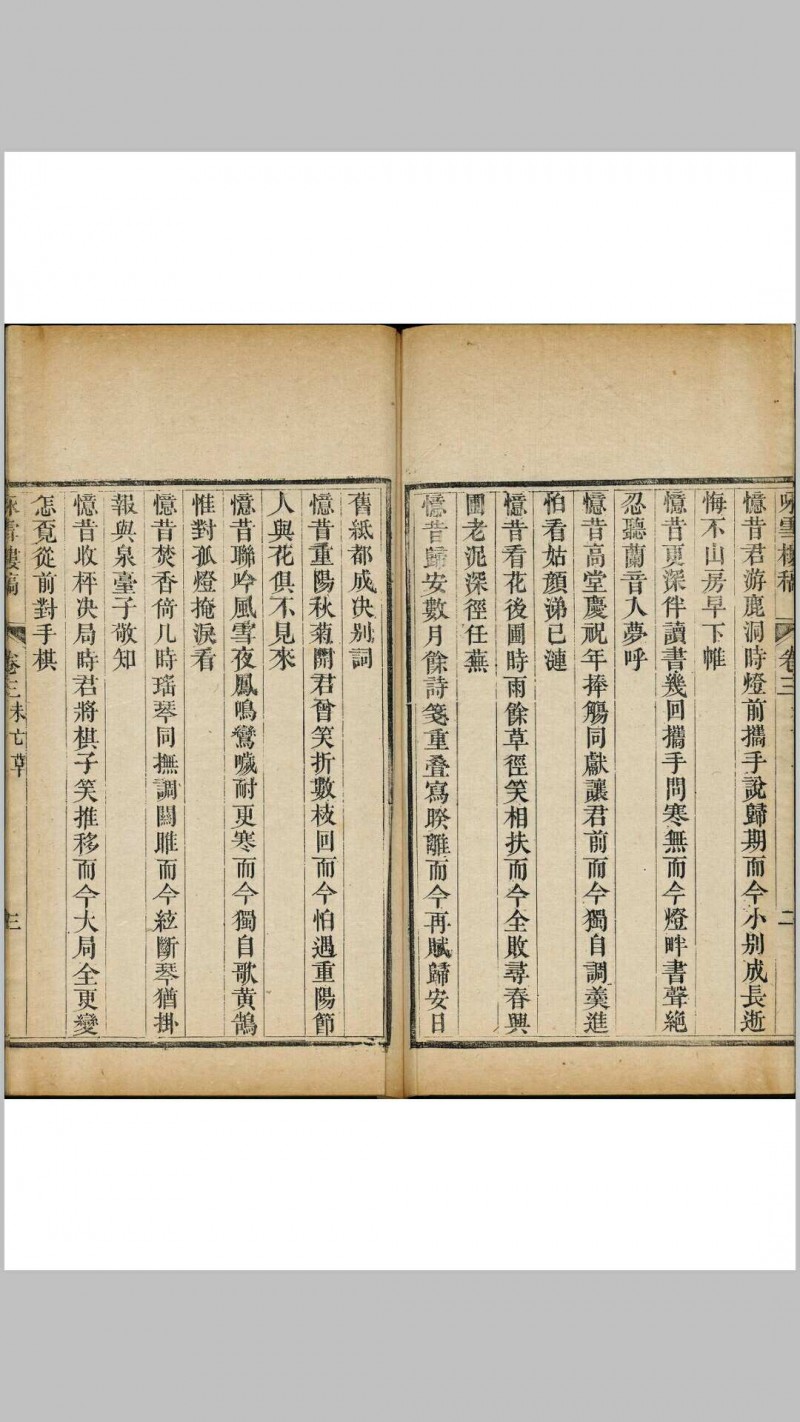 憶昔君游鹿洞時燈前攜手說歸期而今小别成長逝
悔不山房早下帷
憶昔更深伴讀書幾回攜手問寒無而今燈畔書聲絶
忍聽蘭音入夢呼
憶昔高堂慶祝年捧觴同獻讓君前而今獨自調羹進
怕看姑顔涕已漣
憶昔看花後圃時雨餘草徑笑相扶而今全敗尋春興
圃老泥深徑任蕪
憶昔歸安數月餘詩箋重叠寫睽離而今再賦歸安日
舊紙都成决别詞
憶昔重陽秋菊開君曾笑折數枝回而今怕遇重陽節
人與花俱不見來
憶昔聯吟風雪夜鳳鳴鸞噦耐更寒而今獨自歌黄鵠
惟對孤燈掩淚看
憶昔焚香倚几時瑤琴同撫調關雎而今絃斷琴猶掛
報與泉臺子敬知
憶昔收枰决局時君將棋子笑推移而今大局全更變
怎覓從前對手棋
卷三
二
卷三未亡草
三